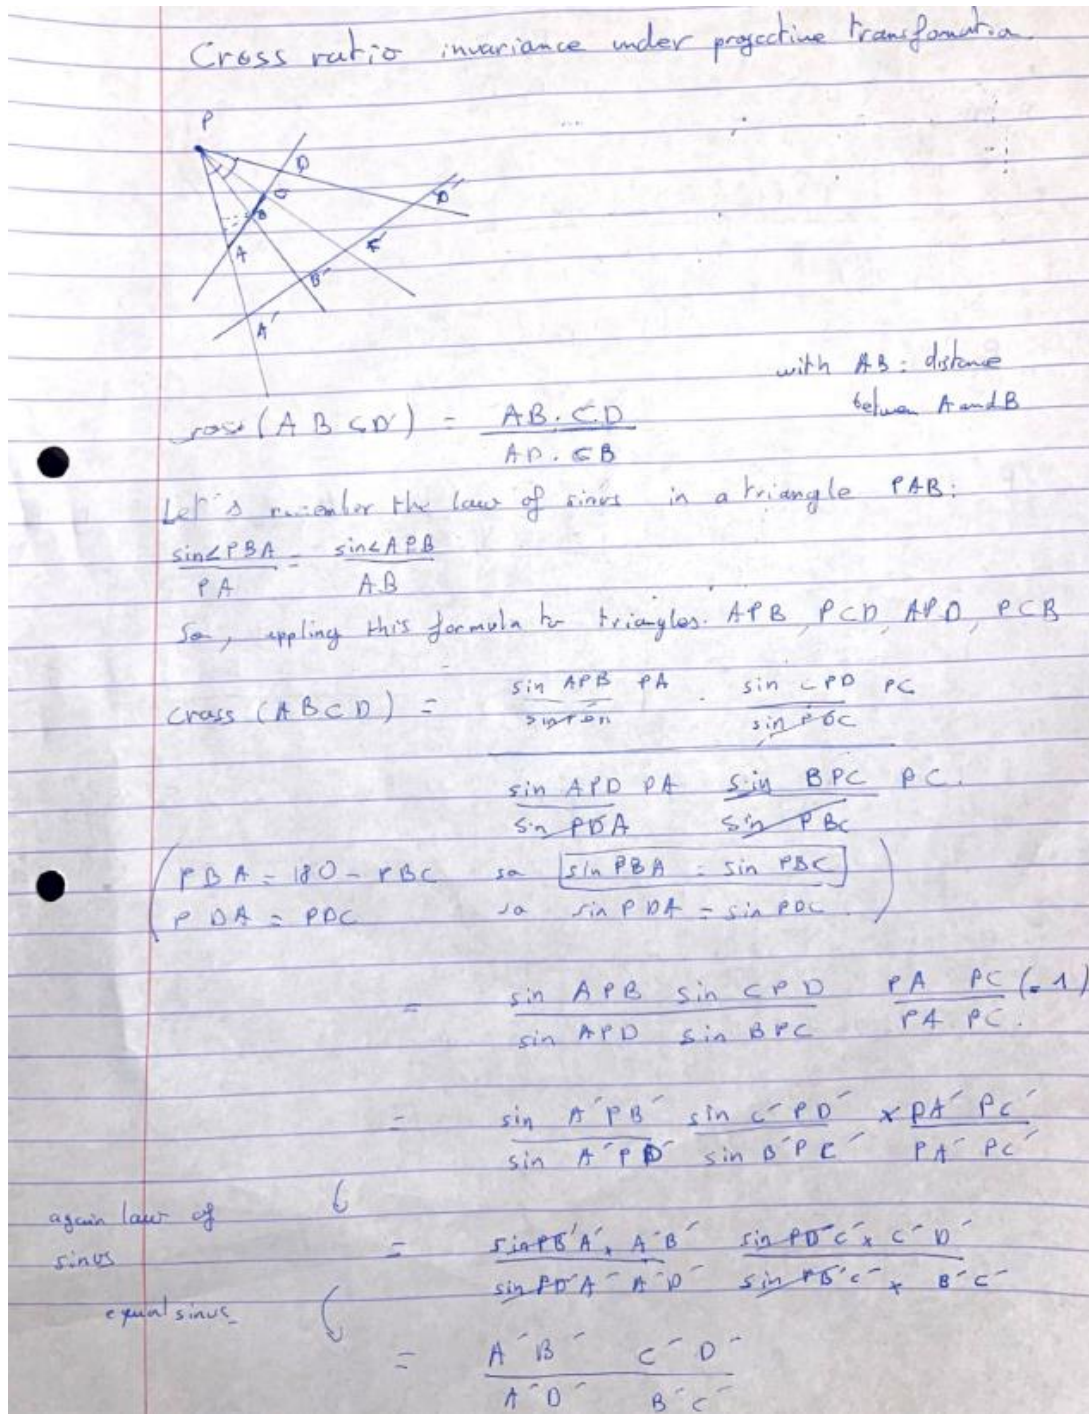 Cross ratio invariance under projective transfomatia.
P
D
C
B
D'
A
C'
B'
A'
with AB: distance
between A and B
cross (A B C D) = AB. CD
AD. CB
Let's remember the law of sinus in a triangle PAB:
sin∠PBA = sin∠APB
PA AB
So, appling this formula to triangles. APB, PCD, APD, PCB
cross (ABCD) = sin APB PA . sin CPD PC
sin PBA sin PDC
sin APD PA sin BPC PC.
sin PDA sin PBC
(PBA = 180 - PBC so sin PBA = sin PBC
PDA = PDC so sin PDA = sin PDC.)
= sin APB sin CPD PA PC (=1)
sin APD sin BPC PA PC.
= sin A'PB' sin C'PD' x PA' PC'
sin A'PD' sin B'PC' PA' PC'
again law of
sinus
= sin PB'A' x A'B' sin PD'C' x C'D'
sin PD'A' A'D' sin PB'C' x B'C'
equal sinus
= A'B' C'D'
A'D' B'C'